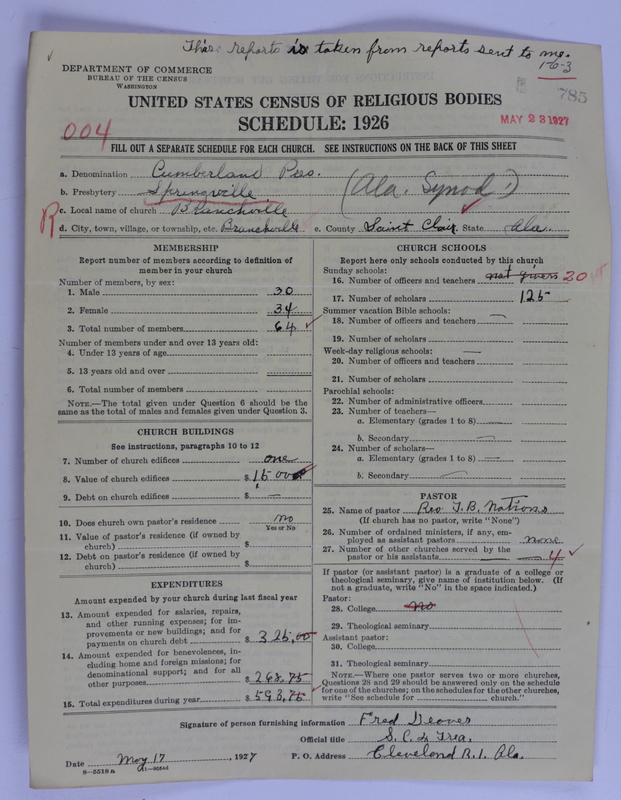 This reports is taken from reports sent to me.
1-6-3
DEPARTMENT OF COMMERCE
BUREAU OF THE CENSUS
WASHINGTON
785
UNITED STATES CENSUS OF RELIGIOUS BODIES
MAY 23 1927
SCHEDULE: 1926
004
FILL OUT A SEPARATE SCHEDULE FOR EACH CHURCH. SEE INSTRUCTIONS ON THE BACK OF THIS SHEET
a. Denomination Cumberland Pres.
b. Presbytery Springville (Ala. Synod)
R c. Local name of church Branchville
d. City, town, village, or township, etc. Branchville e. County Saint Clair State Ala.
MEMBERSHIP
Report number of members according to definition of
member in your church
Number of members, by sex:
1. Male 30
2. Female 34
3. Total number of members 64
Number of members under and over 13 years old:
4. Under 13 years of age
5. 13 years old and over
6. Total number of members
NOTE.—The total given under Question 6 should be the
same as the total of males and females given under Question 3.
CHURCH BUILDINGS
See instructions, paragraphs 10 to 12
7. Number of church edifices one
8. Value of church edifices $ 1500
9. Debt on church edifices $ —
10. Does church own pastor's residence no
Yes or No
11. Value of pastor's residence (if owned by
church) $
12. Debt on pastor's residence (if owned by
church) $
EXPENDITURES
Amount expended by your church during last fiscal year
13. Amount expended for salaries, repairs,
and other running expenses; for im-
provements or new buildings; and for
payments on church debt $ 325,00
14. Amount expended for benevolences, in-
cluding home and foreign missions; for
denominational support; and for all
other purposes $ 268,75
15. Total expenditures during year $ 593,75
CHURCH SCHOOLS
Report here only schools conducted by this church
Sunday schools:
16. Number of officers and teachers not given 20
17. Number of scholars 125
Summer vacation Bible schools:
18. Number of officers and teachers —
19. Number of scholars
Week-day religious schools: —
20. Number of officers and teachers
21. Number of scholars
Parochial schools:
22. Number of administrative officers
23. Number of teachers—
a. Elementary (grades 1 to 8) —
b. Secondary —
24. Number of scholars—
a. Elementary (grades 1 to 8) —
b. Secondary —
PASTOR
25. Name of pastor Rev T.B. Nations
(If church has no pastor, write "None")
26. Number of ordained ministers, if any, em-
ployed as assistant pastors none
27. Number of other churches served by the
pastor or his assistants 4
If pastor (or assistant pastor) is a graduate of a college or
theological seminary, give name of institution below. (If
not a graduate, write "No" in the space indicated.)
Pastor:
28. College no
29. Theological seminary
Assistant pastor:
30. College
31. Theological seminary
NOTE.—Where one pastor serves two or more churches,
Questions 28 and 29 should be answered only on the schedule
for one of the churches; on the schedules for the other churches,
write "See schedule for church."
Signature of person furnishing information Fred Deaver
Official title S.C. & Trea.
Date May 17, 1927 P. O. Address Cleveland R.1. Ala.
8—5518a